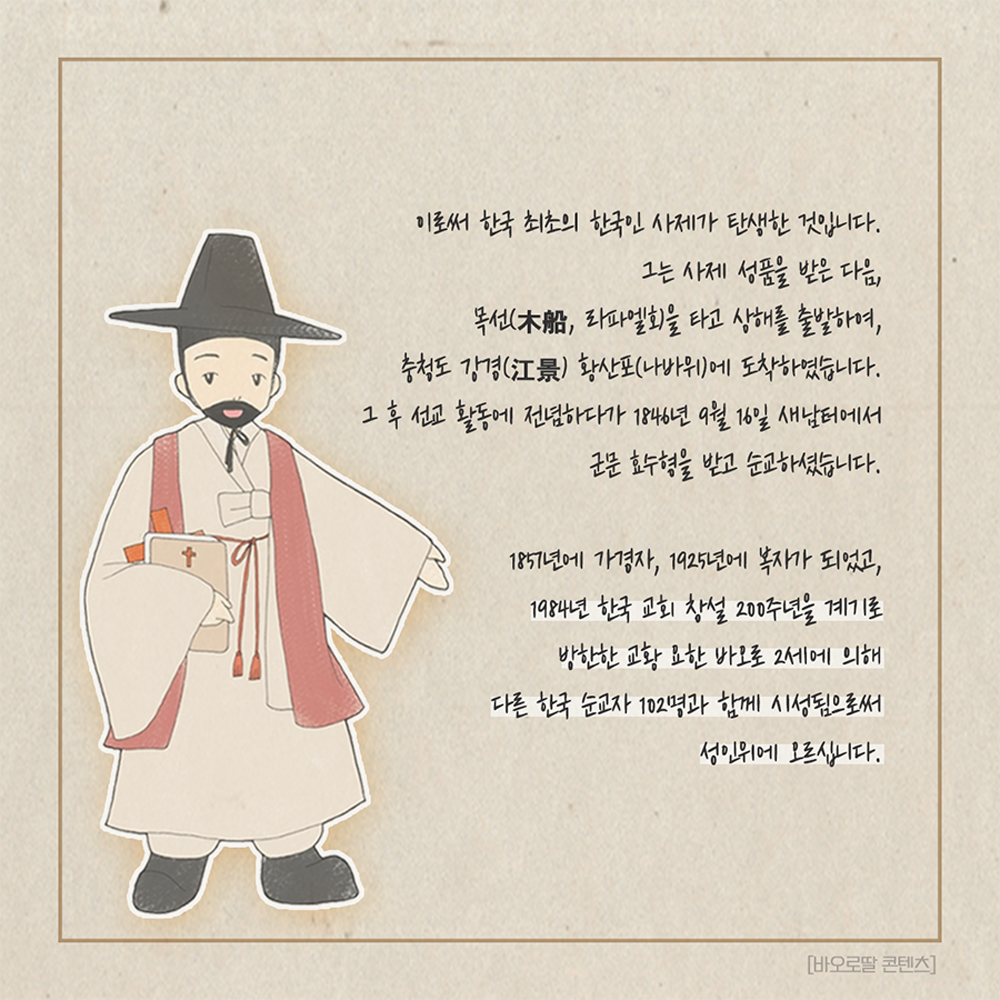 이로써 한국 최초의 한국인 사제가 탄생한 것입니다.
그는 사제 성품을 받은 다음,
목선(木船, 라파엘회)을 타고 상해를 출발하여,
충청도 강경(江景) 황산포(나바위)에 도착하였습니다.
그 후 선교 활동에 전념하다가 1846년 9월 16일 새남터에서
군문 효수형을 받고 순교하셨습니다.
1857년에 가경자, 1925년에 복자가 되었고,
1984년 한국 교회 창설 200주년을 계기로
방한한 교황 요한 바오로 2세에 의해
다른 한국 순교자 102명과 함께 시성됨으로써
성인위에 오르십니다.
[바오로딸 콘텐츠]